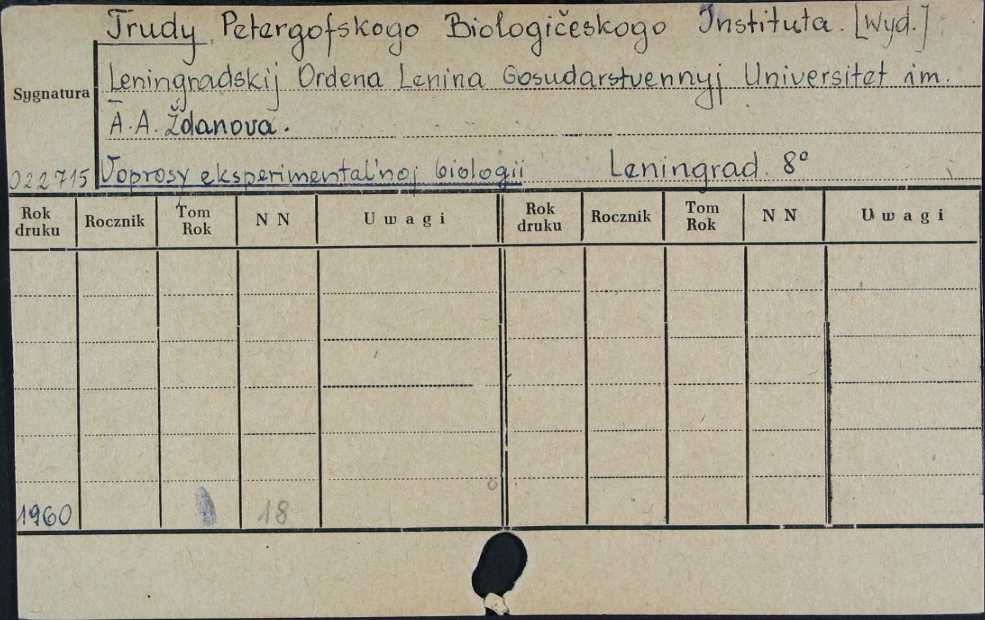 Trudy Petergofskogo Biologičeskogo Instituta. [Wyd.]
Leningradskij Ordena Lenina Gosudarstvennyj Universitet im.
Sygnatura
A. A. Ždanova.
022715 Voprosy eksperimental'noj biologii Leningrad. 8°
Rok druku Rocznik Tom Rok N N Uwagi Rok druku Rocznik Tom Rok N N Uwagi
1960 18